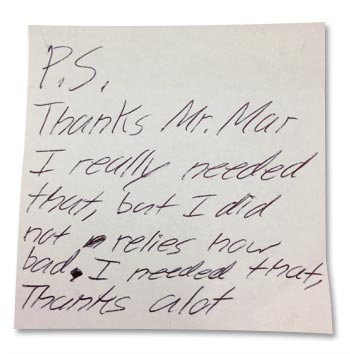 P.S.
Thanks Mr. Mar
I really needed
that, but I did
not relies how
bad, I needed that,
Thanks alot